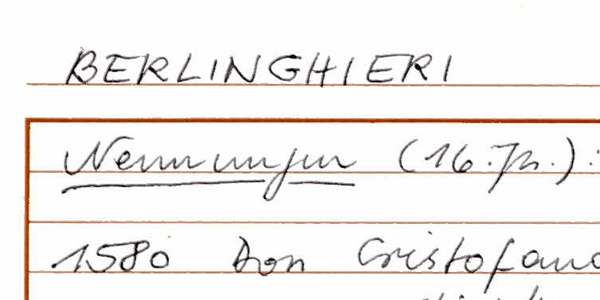 BERLINGHIERI
Nennungen (16. Jh.):
1580 Don Cristofano